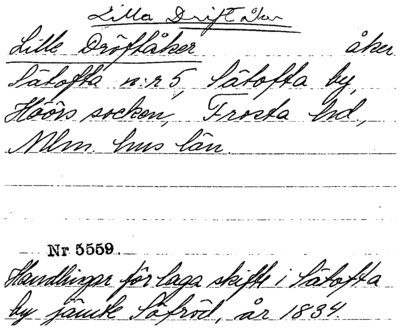 Lilla Driftåker
Lille Dröftåker åker
Sätofta n:r 5, Sätofta by,
Höörs socken, Frosta hd,
Mlm. hus län.
Nr 5559.
Handlingar för laga skifte i Sätofta
by jämte Säfröd, år 1834.